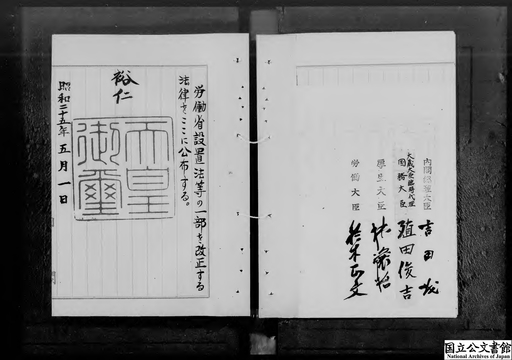 労働省設置法等の一部を改正する
法律をここに公布する。
裕仁
天皇
御璽
昭和二十五年五月一日
内閣総理大臣
吉田茂
大蔵大臣臨時代理
国務大臣
殖田俊吉
厚生大臣
林譲治
労働大臣
鈴木正文
国立公文書館
National Archives of Japan